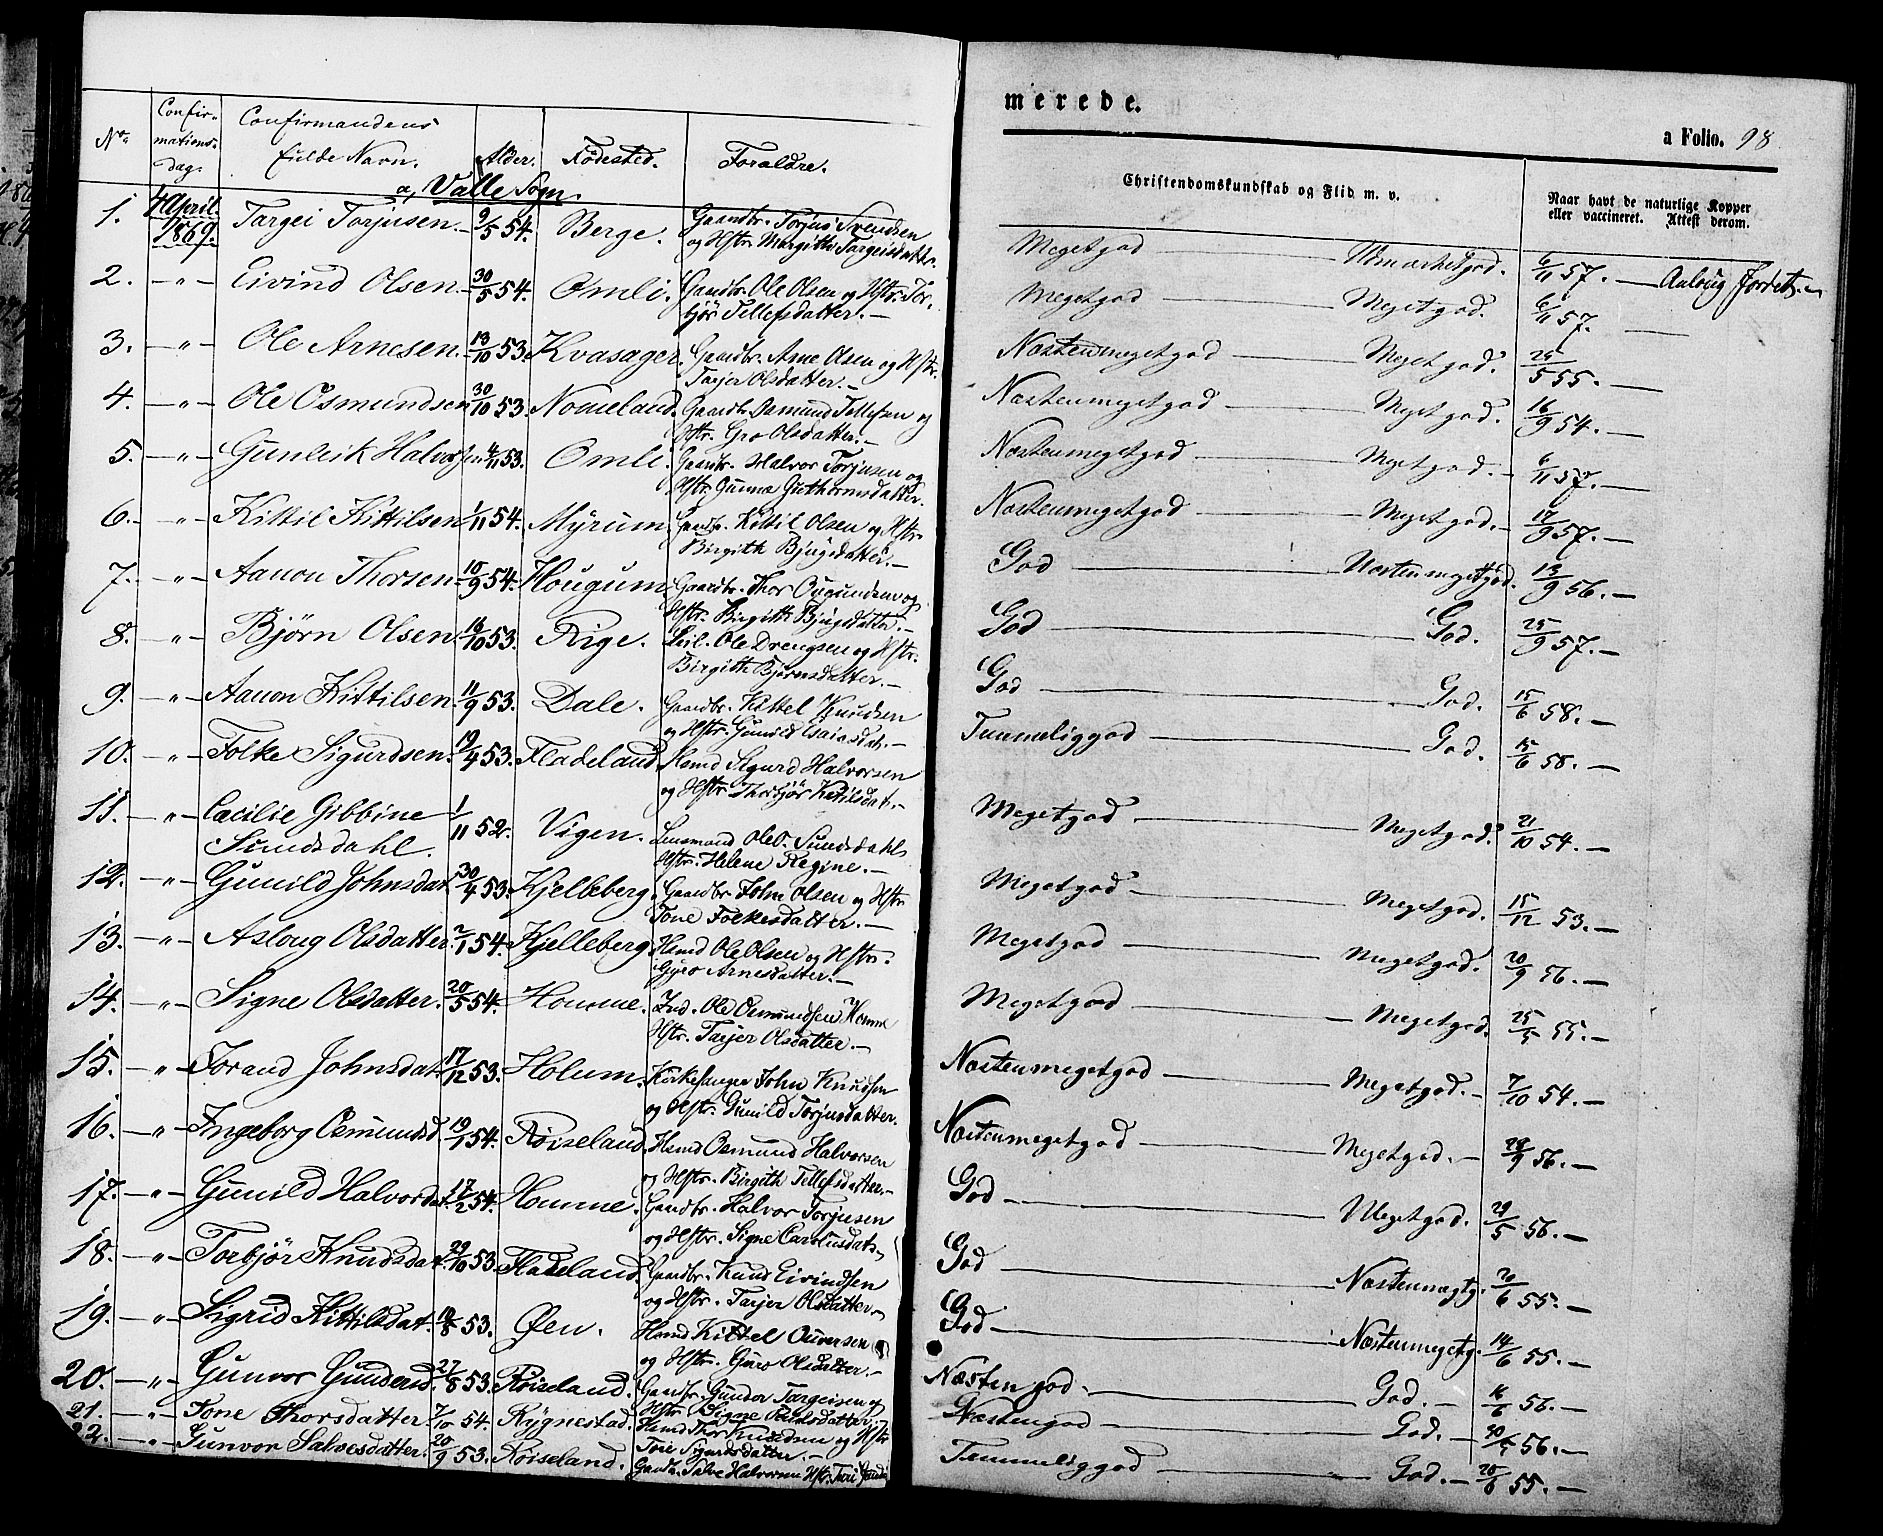 merede.
a Folio. 98
No. Confirmationsdag. Confirmandens fulde Navn. Alder. Fødested. Foraldre.
Christendomskundskab og Flid m. v.
Naar havt de naturlige Kopper
eller vaccineret. Attest derom.
a, Valle Sogn.
1. 4 April 1869. Targei Torjusen. 9/5 54. Berge. Gaardbr. Torjus Svendsen
og Hstr. Margith Targeisdatter. Megetgod — Udmærketgod. 6/11 57. —
2. —"— Eivind Olsen. 30/5 54. Omli. Gaardbr. Ole Olsen og Hstr. Tor-
bjør Tellefsdatter. — Megetgod — Megetgod. 6/11 57. —
3. —"— Ole Arnesen. 13/10 53. Kvasager. Gaardbr. Arne Olsen og Hstr.
Tarjer Olsdatter. — Næstenmegetgod — Megetgod. 25/5 55. —
4. —"— Ole Osmundsen 30/10 53. Nomeland. Gaardbr. Osmund Tellefsen og
Hstr. Gro Olsdatter. — Næstenmegetgod — Megetgod. 16/9 54. —
5. —"— Gunleik Halvorsen 53. Omli. Gaardbr. Halvor Torjusen og
Hstr. Gunne Guthormsdatter. Næstenmegetgod — Megetgod. — 6/11 57. —
6. — —"— Kittil Kittilsen 1/11 54. Myrum. Gaardbr. Kittil Olsen og Hstr.
Birgith Bjugsdatter. — Næstenmegetgod — Megetgod. — 17/9 57. —
7. — —"— Aanon Thorsen 10/9 54. Hougum. Gaardbr. Thor Ougundsen og
Hstr. Birgith Bjugsdatter. — God — Næstenmegetgod. 13/9 56. —
8. —"— Bjørn Olsen. 16/10 53. Rige. Leil. Ole Drengsen og Hstr.
Birgith Bjørnsdatter. — God — God. 25/9 57. —
9. —"— Aanon Kittilsen. 11/9 53. Dale. Gaardbr. Kittel Knudsen
og Hstr. Gunild Esaiasdat. — God — God. 15/6 58. —
10. —"— Folke Sigurdsen. 19/4 53. Fladeland. Hsmd Sigurd Halvorsen
og Hstr. Thorbjør Kittilsdat. — Temmeliggod — God. 15/6 58. —
11. —"— Cæcilie Gibbine 1/11 52. Vigen. Lensmand Ole O. Sundsdahl
Sundsdahl. Hstr. Helene Regine. — Megetgod — Megetgod. 21/10 54. —
12. —"— Gunild Johnsdat. 30/4 53. Kjelleberg. Gaardbr. John Olsen og Hstr.
Tone Folkesdatter. — Megetgod — Megetgod. 15/12 53. —
13. —"— Asloug Olsdatter. 2/1 54. Kjelleberg. Hsmd Ole Olsen og Hstr.
Gyro Arnesdatter. — Megetgod — Megetgod. 20/9 56. —
14. —"— Signe Olsdatter. 20/5 54. Homme. Ind. Ole Osmundsen Homme
Hstr. Tarjer Olsdatter. — Megetgod — Megetgod. 25/5 55. —
15. —"— Jorand Johnsdat. 17/12 53. Holum. Kirkesanger John Knudsen
og Hstr. Gunild Torjusdatter. Næstenmegetgod — Megetgod. — 7/10 54. —
16. —"— Ingeborg Osmundsd. 19/1 54. Røiseland. Hsmd Osmund Halvorsen
og Hstr. Birgith Tellefsdatter. — Næstenmegetgod — Megetgod. — 56. —
17. —"— Gunild Halvorsdat. 17/2 54. Homme. Gaardbr. Halvor Torjusen
og Hstr. Signe Carolusdatr. God — Megetgod. 29/5 56. —
18. —"— Torbjør Knudsdat. 29/10 53. Fladeland. Gaardbr. Knud Eivindsen
og Hstr. Tarjer Olsdatter. God — Næstenmegtg. 20/6 55. —
19. —"— Sigrid Kittilsdat. 53. Øen. Hsmd Kittel Ouversen
og Hstr. Guro Olsdatter. — God — Næstenmegetg. 14/6 55. —
20. —"— Gunvor Gundersd. 27/8 53. Røiseland. Gaardbr. Gunder Targeisen og
Hstr. Signe Poulsdatter. Næsten god. — God. — 16/6 56. —
21. —"— Tone Thorsdatter 7/10 54. Rygnestad. Hsmd Thor Knudsen og Hstr
Tore Sigurdsdatter. — Næstengod — God. — 56. —
22. —"— Gunvor Salvesdatter. 20/9 53. Røiseland. Gaardbr. Salve Halvorsen Hstr. Temmeliggod — God. — 20/6 55. —